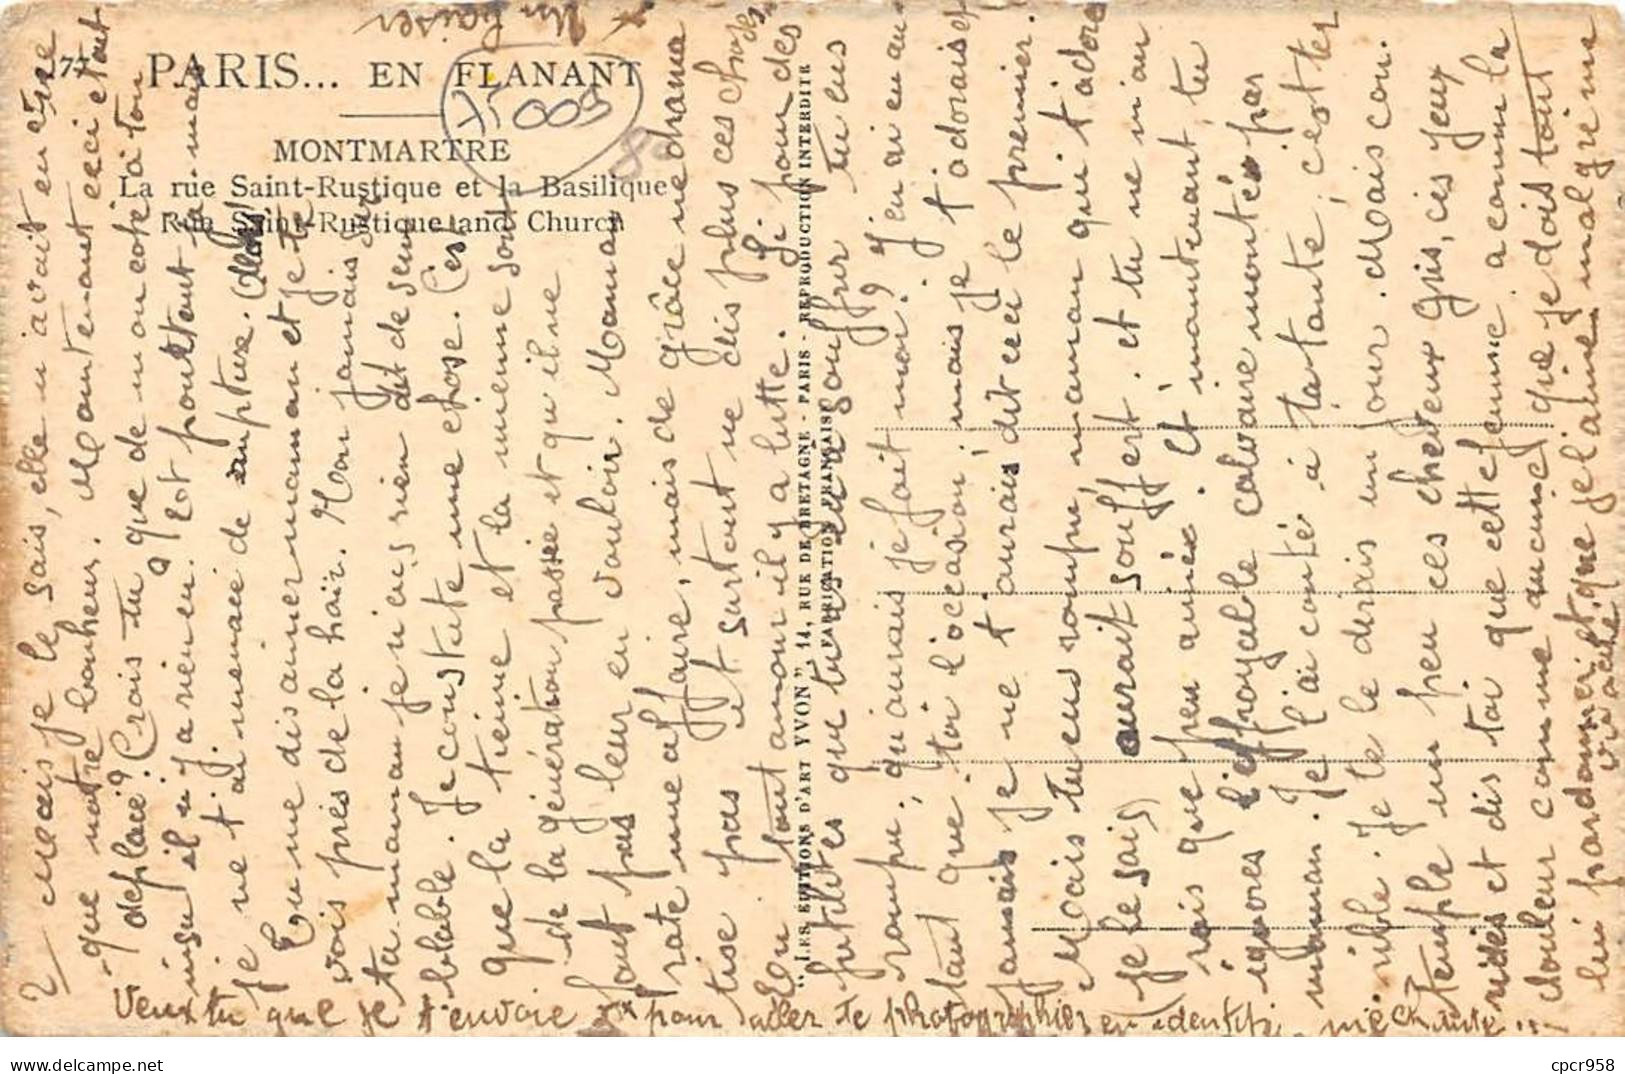 77
PARIS... EN FLANANT
MONTMARTRE
La rue Saint-Rustique et la Basilique
Rue Saint-Rustique and Church
75009
"LES EDITIONS D'ART YVON" 14, RUE DE BRETAGNE - PARIS - REPRODUCTION INTERDITE
FABRICATION FRANÇAISE
Un baiser
2 Mais je le sais, elle n'avait en tête
que notre bonheur. Maintenant ceci était
déplacé? Crois tu que de mon côté à ton
insu il n'y a rien eu. Et pourtant jamais
je ne t'ai menacé de rupture.
Tu me dis aimer maman et je te
vois près de la haïr. Mon jamais sur
ta maman je n'eus rien dit de sem
blable. Je constate une chose. C'est
que la tienne et la mienne sont
de la génération passée et qu'il ne
faut pas leur en vouloir. Maman
rate une affaire, mais de grâce ne drama
tise pas et surtout ne dis plus ces choses
En tout amour il y a lutte. Si pour des
futilités que tu as souffert tu eus
rompu, qu'aurais je fait moi? J'en ai eu au
tant que toi l'occasion, mais je t'adorais et
jamais je ne t'aurais dit ceci le premier.
Mais tu eus rompu, maman qui t'adore
je le sais) aurait souffert. et tu ne m'au
rais que peu aimée. Et maintenant, tu
ignores l'effroyable calvaire monté par
maman. Je l'ai conté à ta tante, c'est ter
rible. Je te le dirais un jour. Mais con
temple un peu ces cheveux gris, ces yeux
ridés et dis toi que cette femme a connu la
douleur comme aucune, que je dois tout
lui pardonner et que je l'aime malgré ma
Veux tu que je t'envoie pour aller te photographier en identité, méchante...